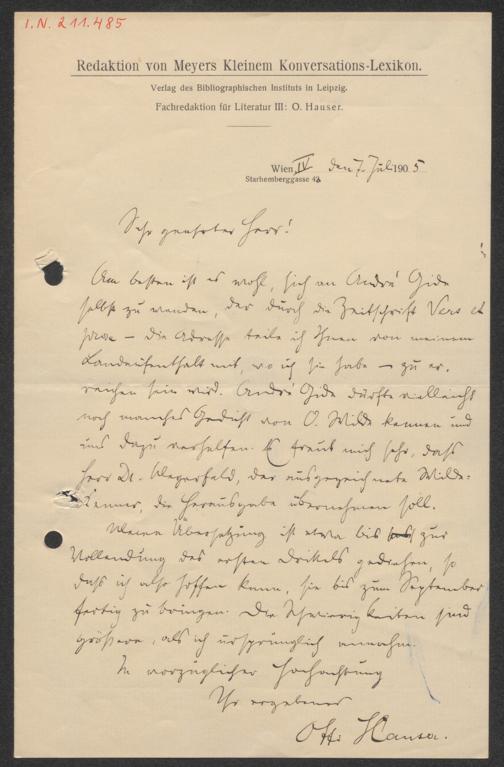 I.N. 211.485
Redaktion von Meyers Kleinem Konversations-Lexikon.
Verlag des Bibliographischen Instituts in Leipzig.
Fachredaktion für Literatur III: O. Hauser.
Wien, IV den 7. Juli 1905
Starhemberggasse 42
Sehr geehrter Herr!
Am besten ist es wohl, sich an André Gide
selbst zu wenden, der durch die Zeitschrift Vers et
prose – die Adresse teile ich Ihnen von meinem
Landaufenthalt mit, wo ich sie habe – zu er-
reichen sein wird. André Gide dürfte vielleicht
noch manches Gedicht von O. Wilde kennen und
uns dazu verhelfen. Es freut mich sehr, daß
Herr Dr. der ausgezeichnete Wilde-
Kenner, die Herausgabe übernehmen soll.
Meine Übersetzung ist etwa bis zur
Vollendung des ersten Drittels gediehen, so
daß ich also hoffen kann, sie bis zum September
fertig zu bringen. Die Schwierigkeiten sind
größere, als ich ursprünglich annahm.
In vorzüglicher Hochachtung
Ihr ergebener
Otto Hauser.